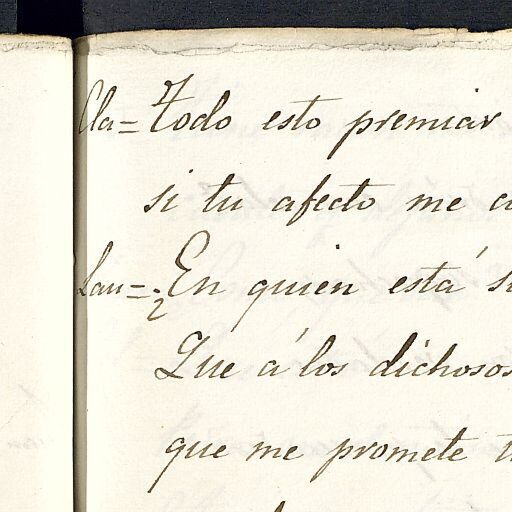 Cla= Todo esto premiar
si tu afecto me
Lau= ¿En quien está
Que á los dichosos
que me promete